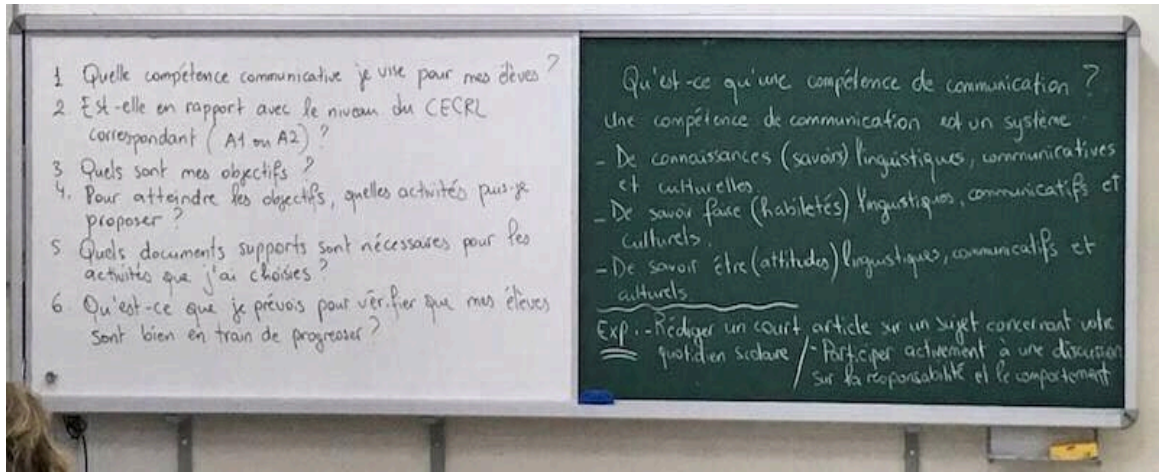 1 Quelle compétence communicative je vise pour mes élèves ?
2 Est-elle en rapport avec le niveau du CECRL
correspondant (A1 ou A2) ?
3 Quels sont mes objectifs ?
4. Pour atteindre les objectifs, quelles activités puis-je
proposer ?
5 Quels documents supports sont nécessaires pour les
activités que j'ai choisies ?
6. Qu'est-ce que je prévois pour vérifier que mes élèves
sont bien en train de progresser ?
Qu'est-ce qu'une compétence de communication ?
Une compétence de communication est un système
- De connaissances (savoirs) linguistiques, communicatives
et culturelles.
- De savoir faire (habiletés) linguistiques, communicatifs et
culturels.
- De savoir être (attitudes) linguistiques, communicatifs et
culturels
Exp. - Rédiger un court article sur un sujet concernant votre
quotidien scolaire / - Participer activement à une discussion
sur la responsabilité et le comportement